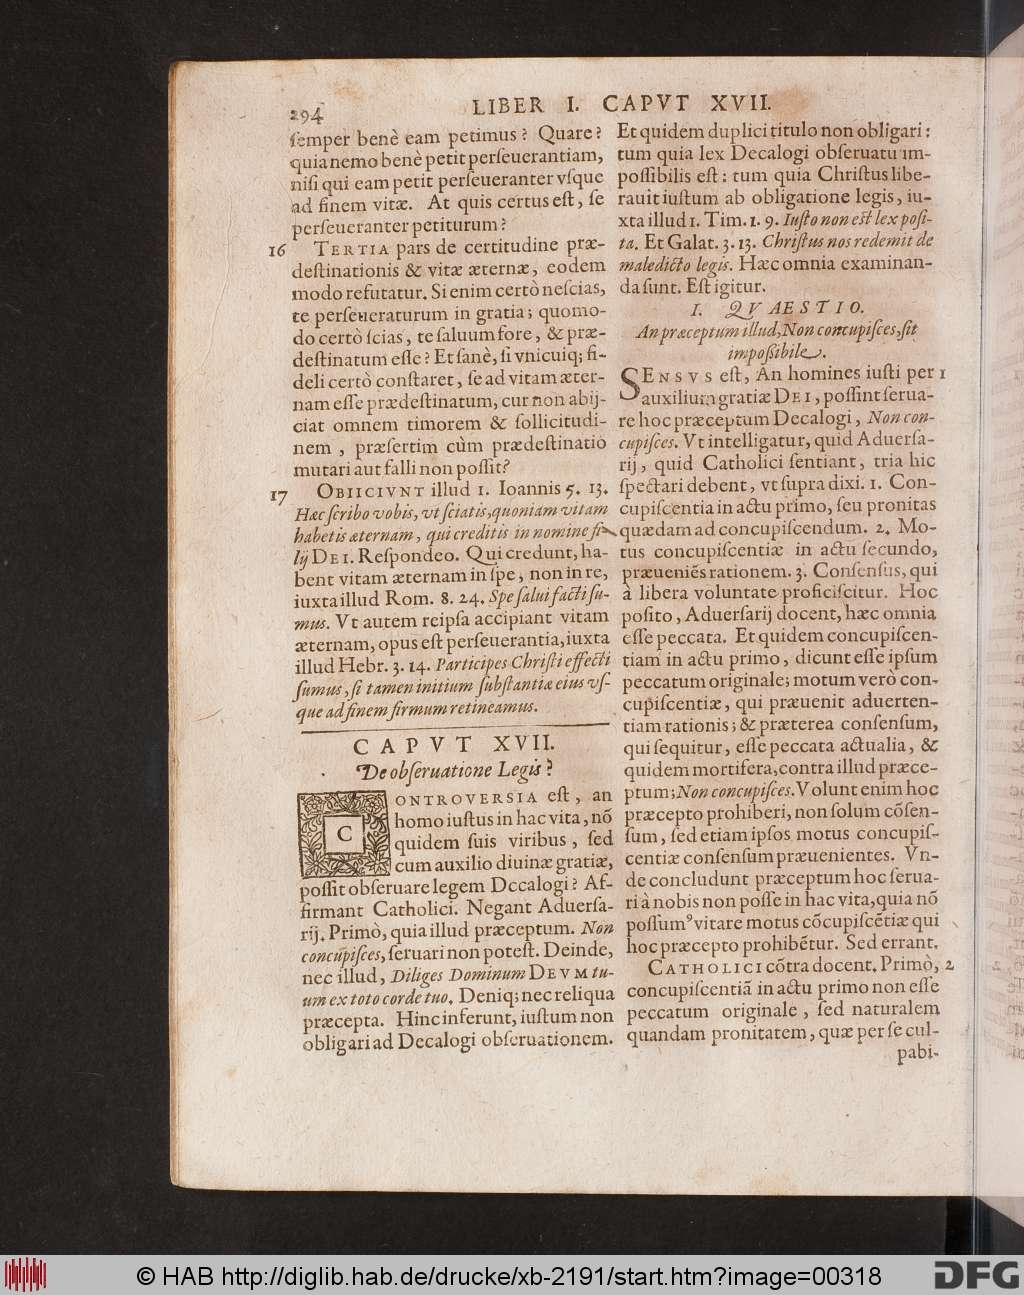 294
LIBER I. CAPVT XVII.
ſemper benè eam petimus? Quare?
quia nemo benè petit perſeuerantiam,
niſi qui eam petit perſeueranter vſque
ad finem vitæ. At quis certus eſt, ſe
perſeueranter petiturum?
16 TERTIA pars de certitudine præ-
deſtinationis & vitæ æternæ, eodem
modo refutatur. Si enim certò neſcias,
te perſeueraturum in gratia; quomo-
do certò ſcias, te ſaluum fore, & præ-
deſtinatum eſſe? Et ſanè, ſi vnicuiq; fi-
deli certò conſtaret, ſe ad vitam æter-
nam eſſe prædeſtinatum, cur non abij-
ciat omnem timorem & ſollicitudi-
nem, præſertim cùm prædeſtinatio
mutari aut falli non poſſit?
17 OBIICIVNT illud 1. Ioannis 5. 13.
Hæc ſcribo vobis, vt ſciatis, quoniam vitam
habetis æternam, qui creditis in nomine fi-
lij DEI. Reſpondeo. Qui credunt, ha-
bent vitam æternam in ſpe, non in re,
iuxta illud Rom. 8. 24. Spe ſalui facti ſu-
mus. Vt autem reipſa accipiant vitam
æternam, opus eſt perſeuerantia, iuxta
illud Hebr. 3. 14. Participes Chriſti effecti
ſumus, ſi tamen initium ſubſtantiæ eius vſ-
que ad finem firmum retineamus.
CAPVT XVII.
De obſeruatione Legis?
CONTROVERSIA eſt, an
homo iuſtus in hac vita, nõ
quidem ſuis viribus, ſed
cum auxilio diuinæ gratiæ,
poſſit obſeruare legem Decalogi? Af-
firmant Catholici. Negant Aduerſa-
rij. Primò, quia illud præceptum. Non
concupiſces, ſeruari non poteſt. Deinde,
nec illud, Diliges Dominum DEVM tu-
um ex toto corde tuo. Deniq; nec reliqua
præcepta. Hinc inferunt, iuſtum non
obligari ad Decalogi obſeruationem.
Et quidem duplici titulo non obligari:
tum quia lex Decalogi obſeruatu im-
poſſibilis eſt: tum quia Chriſtus libe-
rauit iuſtum ab obligatione legis, iu-
xta illud 1. Tim. 1. 9. Iuſto non eſt lex poſi-
ta. Et Galat. 3. 13. Chriſtus nos redemit de
maledicto legis. Hæc omnia examinan-
da ſunt. Eſt igitur.
I. QVAESTIO.
An præceptum illud, Non concupiſces, ſit
impoſſibile.
SENSVS eſt, An homines iuſti per 1
auxilium gratiæ DEI, poſſint ſerua-
re hoc præceptum Decalogi, Non con-
cupiſces. Vt intelligatur, quid Aduerſa-
rij, quid Catholici ſentiant, tria hic
ſpectari debent, vt ſupra dixi. 1. Con-
cupiſcentia in actu primo, ſeu pronitas
quædam ad concupiſcendum. 2. Mo-
tus concupiſcentiæ in actu ſecundo,
præueniẽs rationem. 3. Conſenſus, qui
à libera voluntate proficiſcitur. Hoc
poſito, Aduerſarij docent, hæc omnia
eſſe peccata. Et quidem concupiſcen-
tiam in actu primo, dicunt eſſe ipſum
peccatum originale; motum verò con-
cupiſcentiæ, qui præuenit aduerten-
tiam rationis; & præterea conſenſum,
qui ſequitur, eſſe peccata actualia, &
quidem mortifera, contra illud præce-
ptum; Non concupiſces. Volunt enim hoc
præcepto prohiberi, non ſolum cõſen-
ſum, ſed etiam ipſos motus concupiſ-
centiæ conſenſum præuenientes. Vn-
de concludunt præceptum hoc ſerua-
ri à nobis non poſſe in hac vita, quia nõ
poſſumꝰ vitare motus cõcupiſcẽtiæ qui
hoc præcepto prohibẽtur. Sed errant.
CATHOLICI cõtra docent. Primò, 2
concupiſcentiã in actu primo non eſſe
peccatum originale, ſed naturalem
quandam pronitatem, quæ per ſe cul-
pabi-
© HAB http://diglib.hab.de/drucke/xb-2191/start.htm?image=00318
DFG